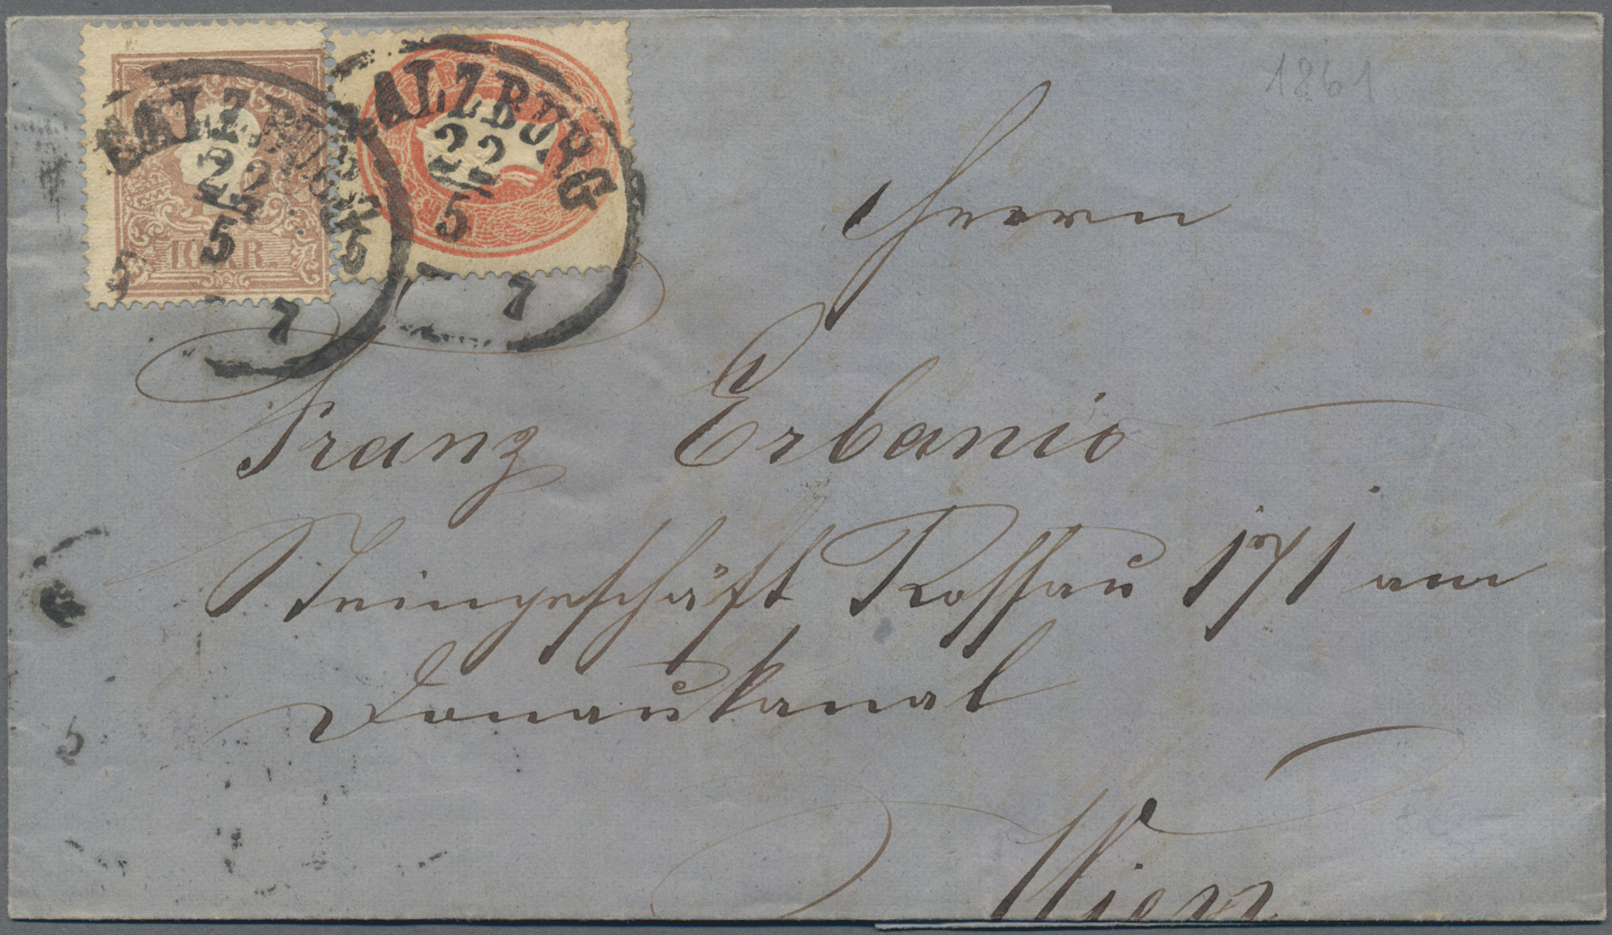 1861
SALZBURG
22
5
7
SALZBURG
22
5
7
10 KR
Herrn
Franz Erbanio
Steingeschäft Rossau 171 am
Donaukanal
Wien